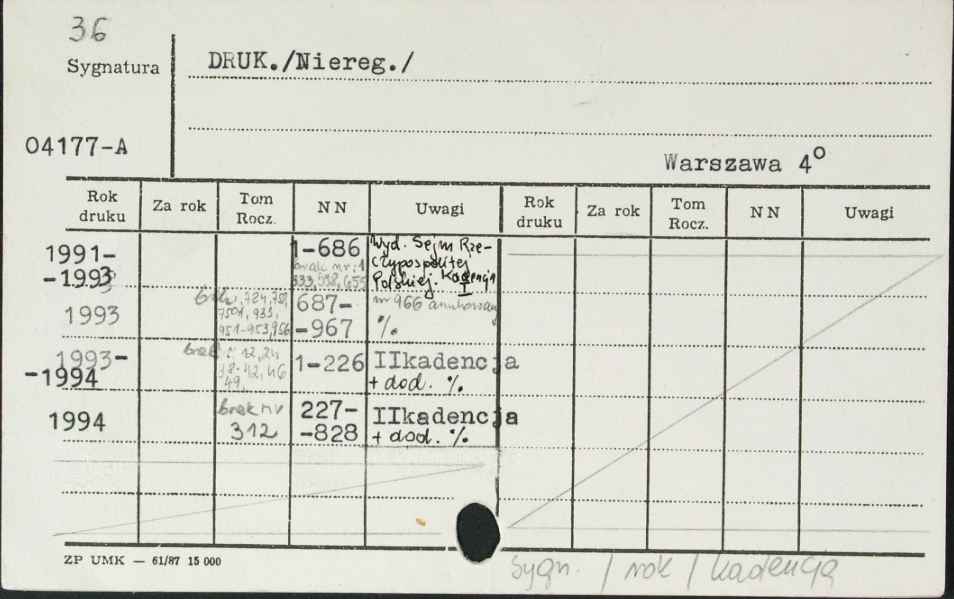 36
Sygnatura
DRUK./Niereg./
04177-A
Warszawa 4°
Rok druku Za rok Tom Rocz. NN Uwagi Rok druku Za rok Tom Rocz. NN Uwagi
1991-
-1993
1-686
brak nr: 1
333, 598, 655
Wyd. Sejm Rze-
czypospolitej
Polskiej. Kadencja
I
1993
951-953, 956
687-
-967
nr 966 anulowany
%
1993-
-1994
brak: 12, 24
38-42, 46
49,
1-226
IIkadencja
+ dod. %
1994
brak nr
312
227-
-828
IIkadencja
+ dod. %
ZP UMK — 61/87 15 000
sygn. / rok / kadencja